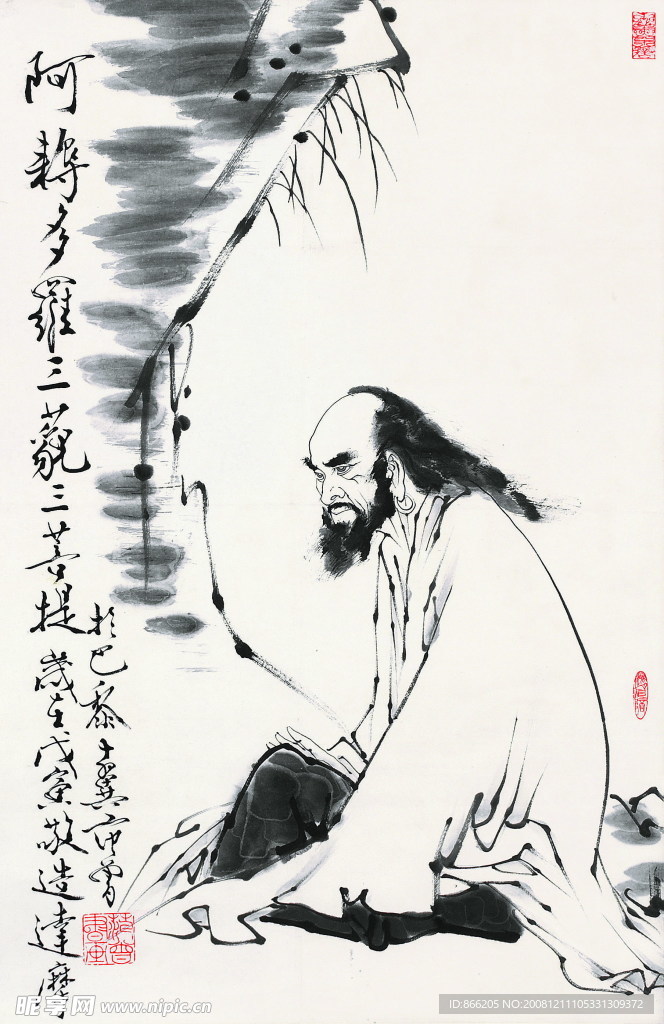 阿耨多羅三藐三菩提
歲在戊寅敬造達摩
於巴黎十翼范曾
昵享网 www.nipic.cn
ID:866205 NO:20081211105331309372